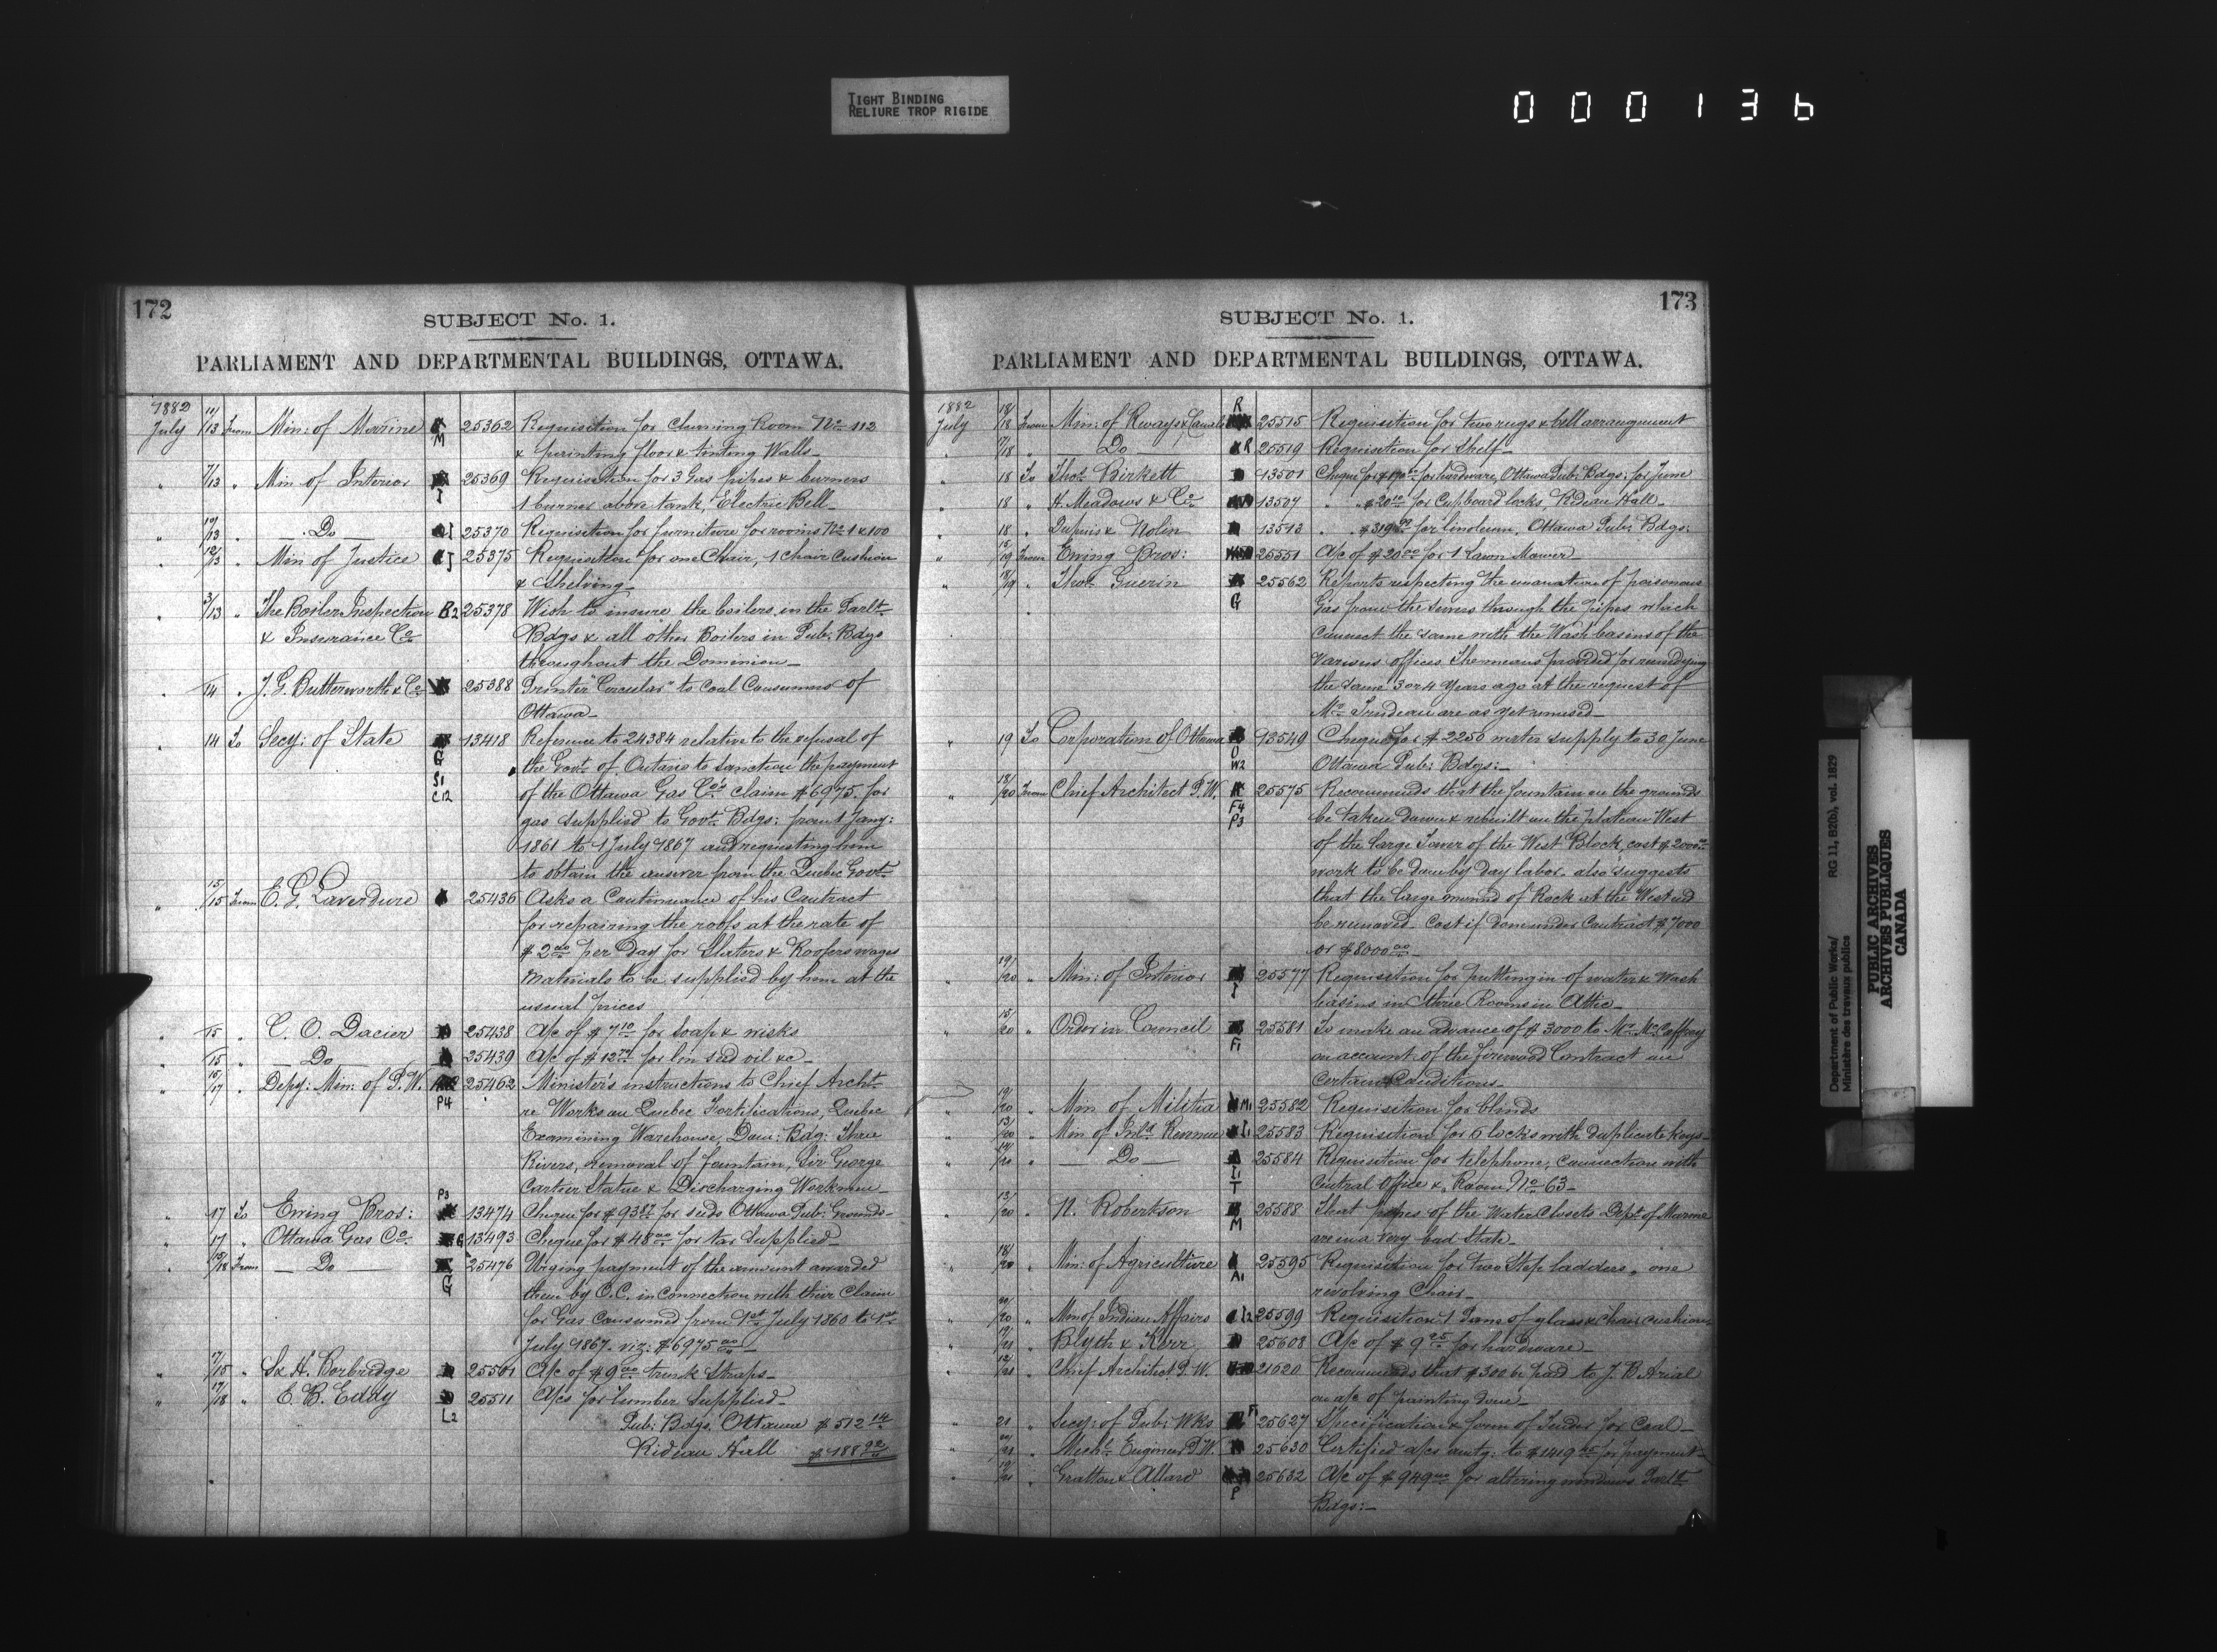 TIGHT BINDING
RELIURE TROP RIGIDE
000136
172
SUBJECT No. 1.
PARLIAMENT AND DEPARTMENTAL BUILDINGS, OTTAWA.
1882
July 11/13 From Min: of Marine M 25362 Requisition for cleaning Room No 112
& painting floor & tinting Walls
" 7/13 " Min of Interior I 25369 Requisition for 3 Gas pipes & burners
1 burner above tank, Electric Bell
" 10/13 " Do I 25370 Requisition for furniture for rooms No 1 & 100
" 12/13 " Min of Justice J 25375 Requisition for one Chair, 1 chair cushion
& Shelving
" 3/13 " The Boiler Inspection B2 25378 Wish to insure the boilers in the Parlt
& Insurance Co Bdgs & all other Boilers in Pub: Bdgs
throughout the Dominion
" /14 " J. G. Butterworth & Co 25388 Printer "Circular" to Coal Consumers of
Ottawa
" 14 To Secy: of State 13418 Reference to 24384 relative to the refusal of
G the Govt of Ontario to sanction the payment
S1 of the Ottawa Gas Co's claim $6975. for
C12 gas supplied to Govt Bdgs: from 1 Jany:
1861 to 1 July 1867 and requesting him
to obtain the answer from the Quebec Govt
" 15/15 From E. G. Laverdure 25436 Asks a Continuance of his Contract
for repairing the roofs at the rate of
$2.00 per Day for Slaters & Roofers wages
Materials to be supplied by him at the
usual prices
" /15 " C. O. Dacier 25438 A/c of $7.10 for soap & wisks
" /15 " Do 25439 A/c of $12 for lin seed oil &c
" 15/17 " Depy: Min: of P.W. 25462 Minister's instructions to Chief Archt
P4 re Works on Quebec Fortifications, Quebec
Examining Warehouse, Dom: Bdg: Three
Rivers, removal of fountain, Sir George
Cartier Statue & Discharging Workmen
P3
" 17 To Ewing Bros: 13474 Cheque for $93 for seeds Ottawa Pub: Grounds
" 17 " Ottawa Gas Co G 13493 Cheque for $48.00 for tar supplied
" 15/18 From Do 25476 Urging payment of the amount awarded
G them by O.C. in connection with their Claim
for Gas Consumed from 1st July 1860 to 1st
July 1867. viz: $6975.00
" 17/18 " S & H. Borbridge 25501 A/c of $9.00 trunk Straps
" 17/18 " E. B. Eddy 25511 A/cs for lumber Supplied
L2 Pub: Bdgs. Ottawa $512.14
Rideau Hall $188.92
173
SUBJECT No. 1.
PARLIAMENT AND DEPARTMENTAL BUILDINGS, OTTAWA.
1882 R
July 18/18 From Min: of Rways & Canals 25515 Requisition for two rugs & bell arrangement
" 17/18 " Do R 25519 Requisition for Shelf
" 18 To Thos. Birkett 13501 Cheque for for hardware, Ottawa Pub: Bdgs: for June
" 18 " H. Meadows & Co 13507 " " $20.10 for Cupboard locks, Rideau Hall
" 18 " Dupuis & Nolin 13513 " " $319 for linoleum, Ottawa Pub: Bdgs:
" 15/19 From Ewing Bros: 25551 A/c of $20.00 for 1 Lawn Mower
" 18/19 " Thos. Guerin 25562 Reports respecting the emanation of poisonous
G Gas from the sewers through the pipes which
connect the same with the Wash basins of the
various offices. The means provided for remedying
the same 3 or 4 years ago at the request of
Mr Trudeau are as yet unused
" 19 To Corporation of Ottawa 13549 Cheque for $2250 water supply to 30 June
O W2 Ottawa Pub: Bdgs:
" 18/20 From Chief Architect P.W. 25575 Recommends that the fountain on the grounds
F4 be taken down & rebuilt on the plateau West
P3 of the large Tower of the West Block, cost $2000.00
work to be done by day labor. also suggests
that the large mound of Rock at the West end
be removed. Cost if done under Contract $7000
or $8000.00
" 19/20 " Min: of Interior 25577 Requisition for putting in of water & Wash
I basins in three Rooms in Attic
" 15/20 " Order in Council 25581 To make an advance of $3000 to Mr. McCaffrey
F1 on account of the firewood Contract on
certain Conditions
" 19/20 " Min of Militia M1 25582 Requisition for blinds
" 13/20 " Min of Inld Revenue I1 25583 Requisition for 6 locks with duplicate keys
" 19/20 " Do 25584 Requisition for telephone, connection with
I1 T Central Office & Room No 63
" 13/20 " N. Robertson 25588 That pipes of the Water Closets Dept of Marine
M are in a very bad State
" 18/20 " Min: of Agriculture 25595 Requisition for two Step ladders, one
A1 revolving Chair
" 20/20 " Min of Indian Affairs I2 25599 Requisition 1 Pane of glass & chair cushion
" 19/21 " Blyth & Kerr 25608 A/c of $9.25 for hardware
" 12/21 " Chief Architect P.W. 21620 Recommends that $300 be paid to J. B Arial
on a/c of painting done
" 21 " Secy: of Pub: Wks F 25627 Specification & form of Tender for Coal
" 20/21 " Mechl Engineer P.W. 25630 Certified a/cs amtg: to $1419 for payment
" 19/21 " Gratton & Allard 25632 A/c of $949.00 for altering windows Parlt
P Bdgs:
Department of Public Works/
Ministère des travaux publics
RG 11, B2(b), vol. 1829
PUBLIC ARCHIVES
ARCHIVES PUBLIQUES
CANADA